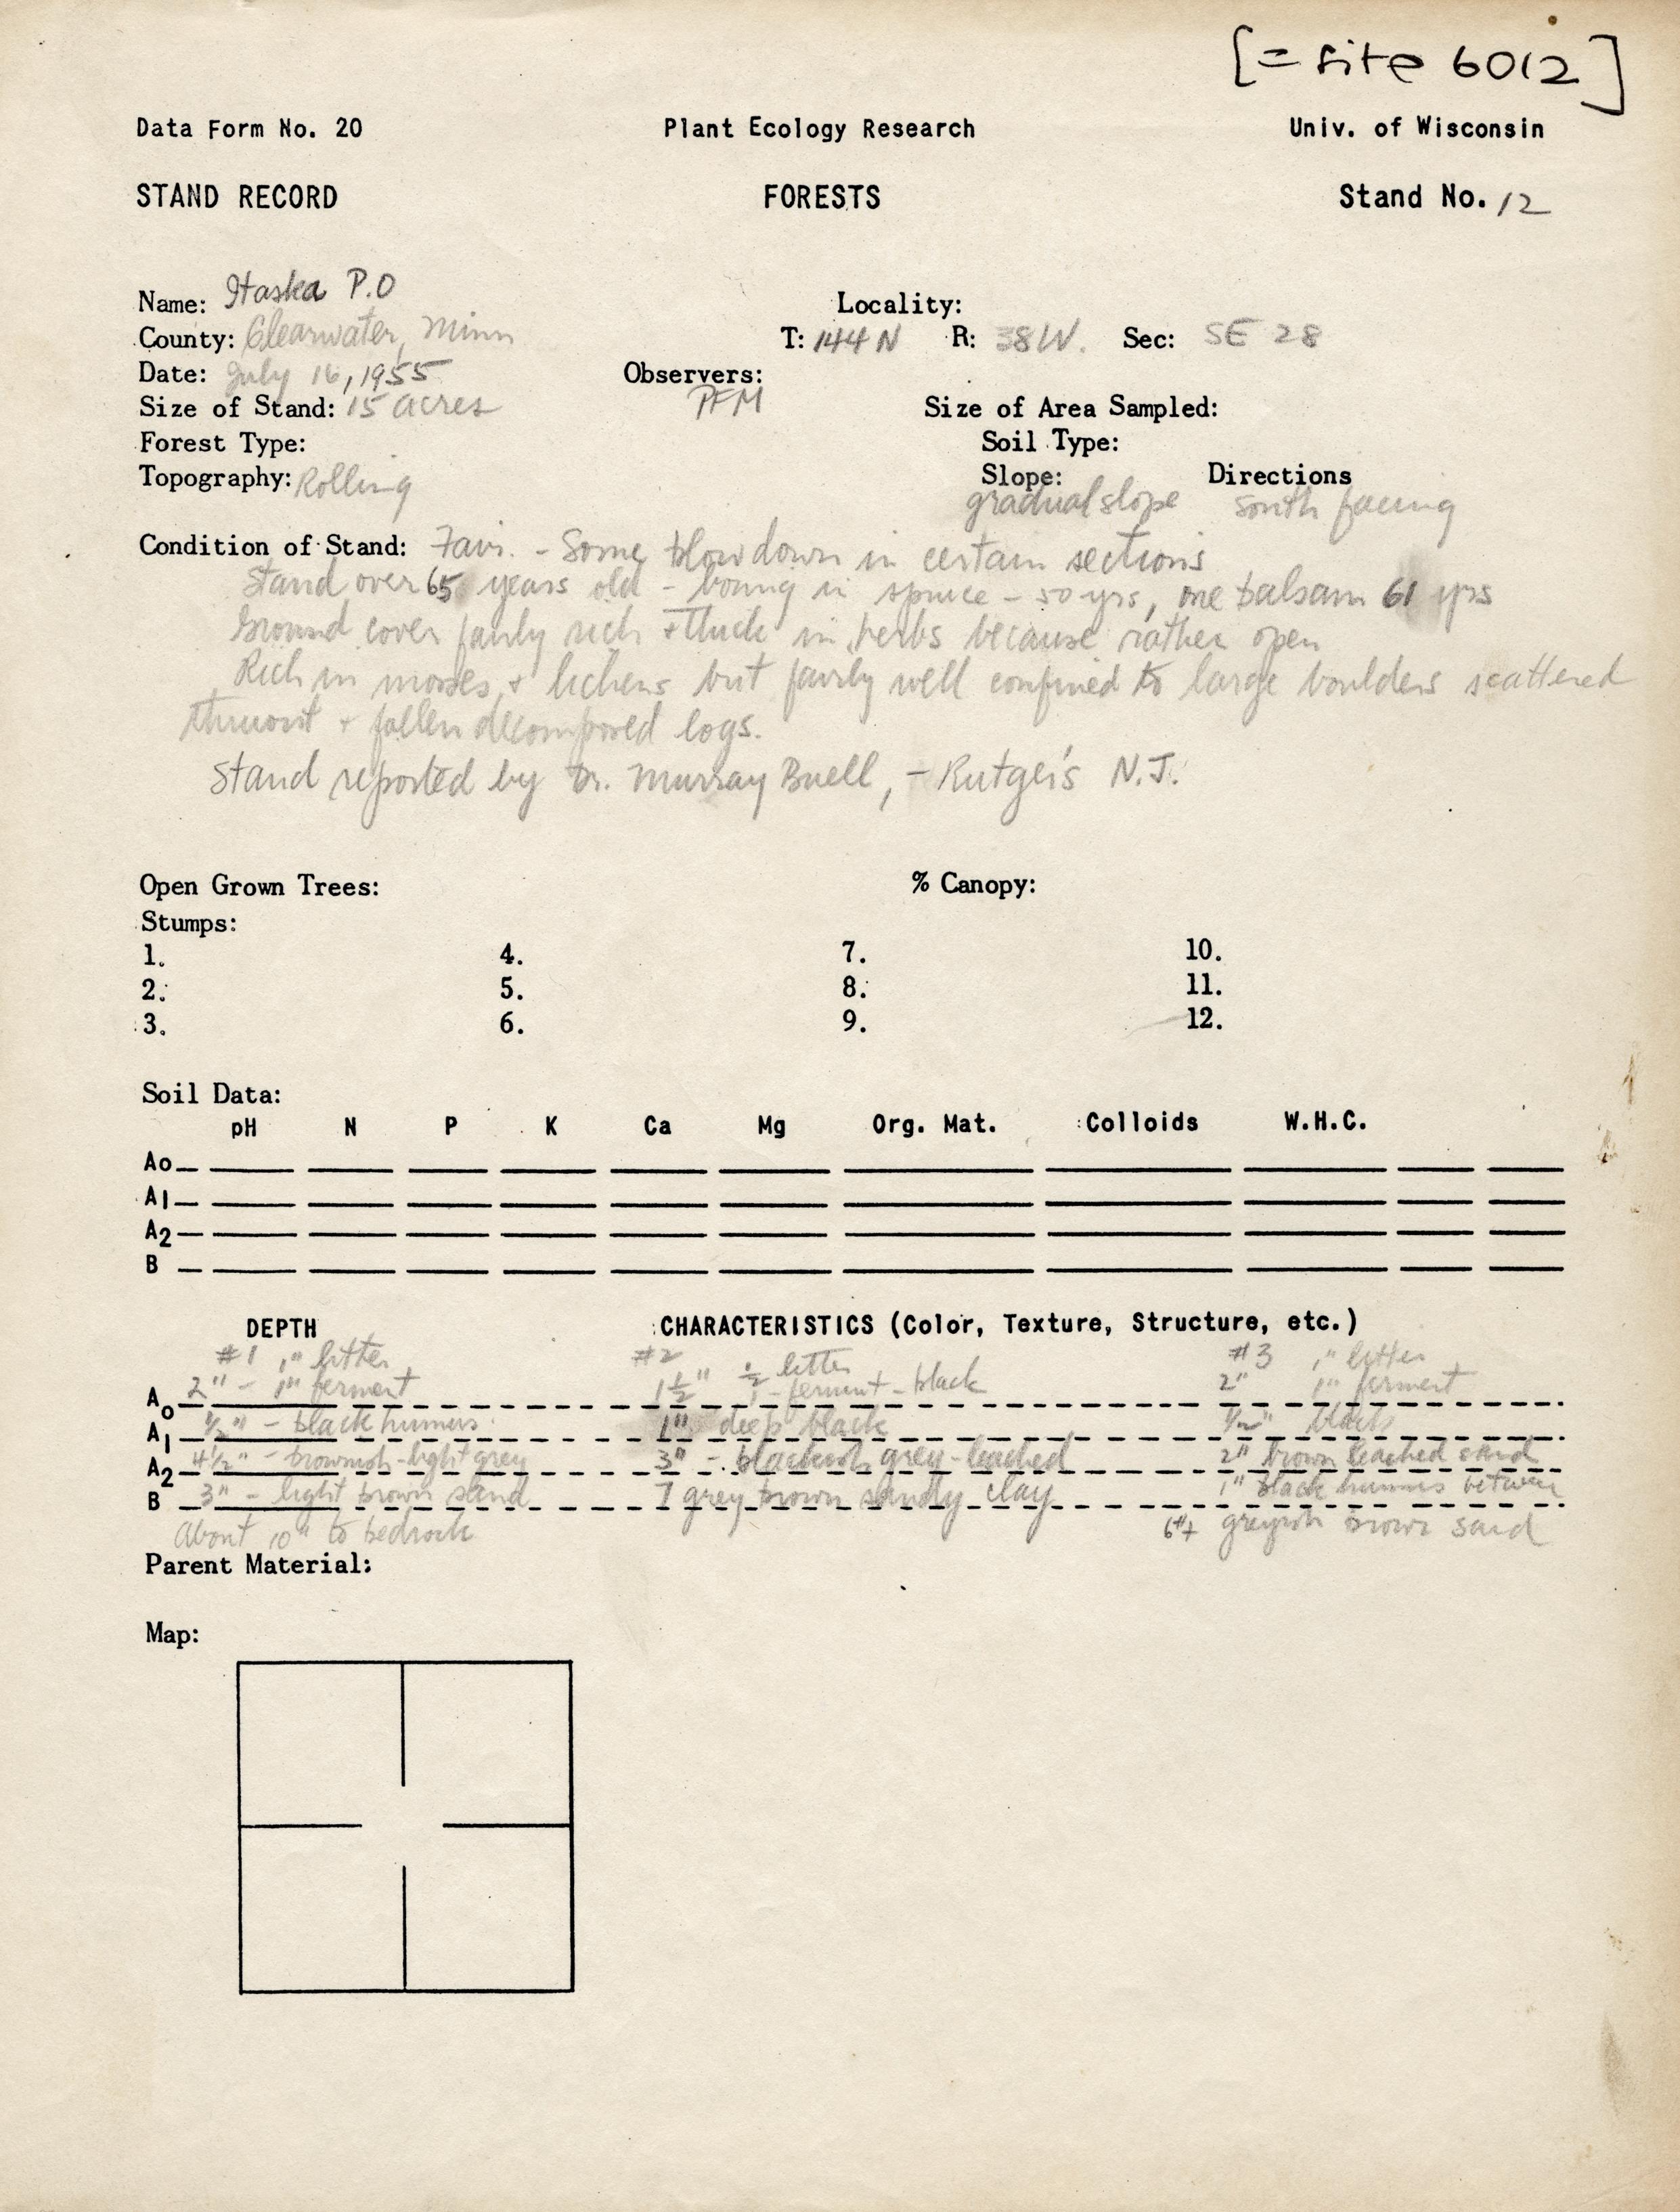 [= site 6012]
Data Form No. 20 Plant Ecology Research Univ. of Wisconsin
STAND RECORD FORESTS Stand No. 12
Name: Itaska P.O Locality:
County: Clearwater, Minn T: 144 N R: 38 W. Sec: SE 28
Date: July 16, 1955 Observers: PFM
Size of Stand: 15 acres Size of Area Sampled:
Forest Type: Soil Type:
Topography: Rolling Slope: Directions
gradual slope south facing
Condition of Stand: Fair. - Some blowdown in certain sections
Stand over 65 years old - boring in spruce - 50 yrs, one balsam 61 yrs
Ground cover fairly rich + thick in herbs because rather open
Rich in mosses + lichens but fairly well confined to large boulders scattered
thruout + fallen decomposed logs.
Stand reported by Dr. Murray Buell, - Rutger's N.J.
Open Grown Trees: % Canopy:
Stumps:
1. 4. 7. 10.
2. 5. 8. 11.
3. 6. 9. 12.
Soil Data:
pH N P K Ca Mg Org. Mat. Colloids W.H.C.
Ao
A1
A2
B
DEPTH CHARACTERISTICS (Color, Texture, Structure, etc.)
#1 1" litter #2 ½ litter #3 1" litter
Ao 2" - 1" ferment 1½" 1 - ferment - black 2" 1" ferment
A1 ½" - black humus. 1" deep black ½" black
A2 4½" - brownish-light grey 3" - blackish grey-leached 2" brown leached sand
B 3" - light brown sand 7 grey brown sandy clay 1" black humus between
About 10" to bedrock 6"+ greyish brown sand
Parent Material:
Map: